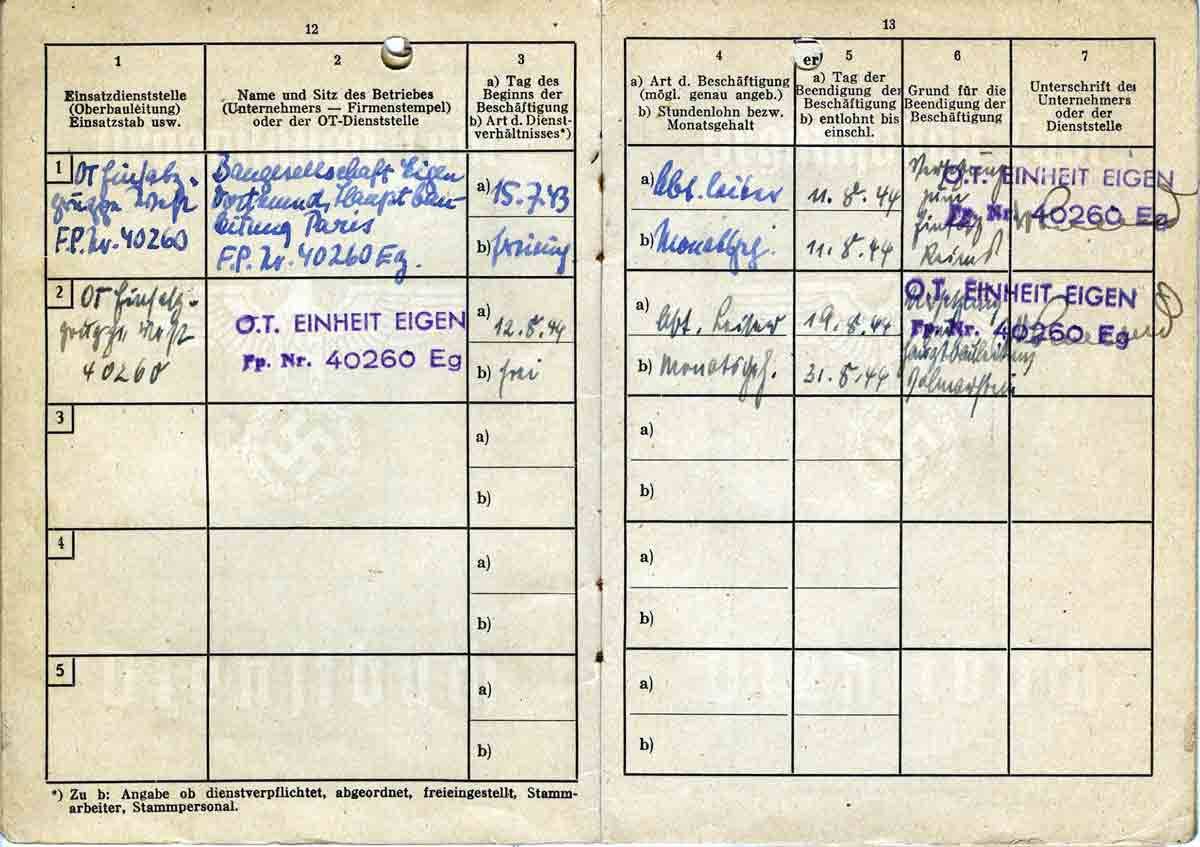 12
1
Einsatzdienststelle
(Oberbauleitung)
Einsatzstab usw.
2
Name und Sitz des Betriebes
(Unternehmers — Firmenstempel)
oder der OT-Dienststelle
3
a) Tag des
Beginns der
Beschäftigung
b) Art d. Dienst-
verhältnisses*)
1
OT Einsatz-
gruppe West
F.P. Nr. 40260
Baugesellschaft Eigen
Dortmund, Hauptbau-
leitung Paris
F.P. Nr. 40260 Eg.
a) 15.7.43
b)
2
OT Einsatz-
gruppe West
40260
O.T. EINHEIT EIGEN
Fp. Nr. 40260 Eg
a) 12.8.44
b) frei
3
a)
b)
4
a)
b)
5
a)
b)
*) Zu b: Angabe ob dienstverpflichtet, abgeordnet, freieingestellt, Stamm-
arbeiter, Stammpersonal.
13
4
a) Art d. Beschäftigung
(mögl. genau angeb.)
b) Stundenlohn bezw.
Monatsgehalt
er
5
a) Tag der
Beendigung der
Beschäftigung
b) entlohnt bis
einschl.
6
Grund für die
Beendigung der
Beschäftigung
7
Unterschrift des
Unternehmers
oder der
Dienststelle
a) Abt. Leiter
b) Monatsgeh.
11.8.44
11.8.44
zum
Einsatz
O.T. EINHEIT EIGEN
Fp. Nr. 40260 Eg
a) Abt. Leiter
b) Monatsgeh.
19.8.44
31.8.44
Hauptbauleitung
O.T. EINHEIT EIGEN
Fp. Nr. 40260 Eg
a)
b)
a)
b)
a)
b)